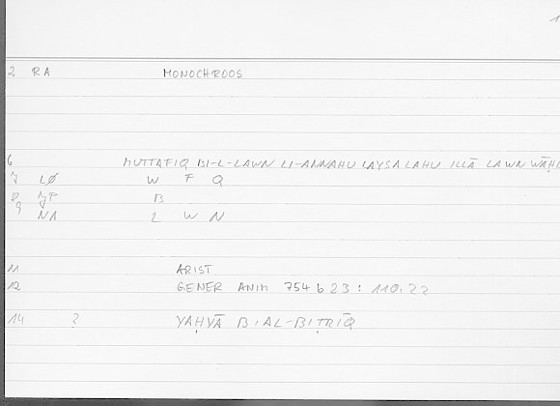 1
2 RA MONOCHROOS
6 MUTTAFIQ BI-L-LAWN LI-ANNAHU LAYSA LAHU ILLĀ LAWN WĀḤI
7 LØ W F Q
8 B
9 NA L W N
11 ARIST
12 GENER ANIM 754 b 23 : 110.22
14 ? YAḤYĀ B. AL-BIṬRĪQ